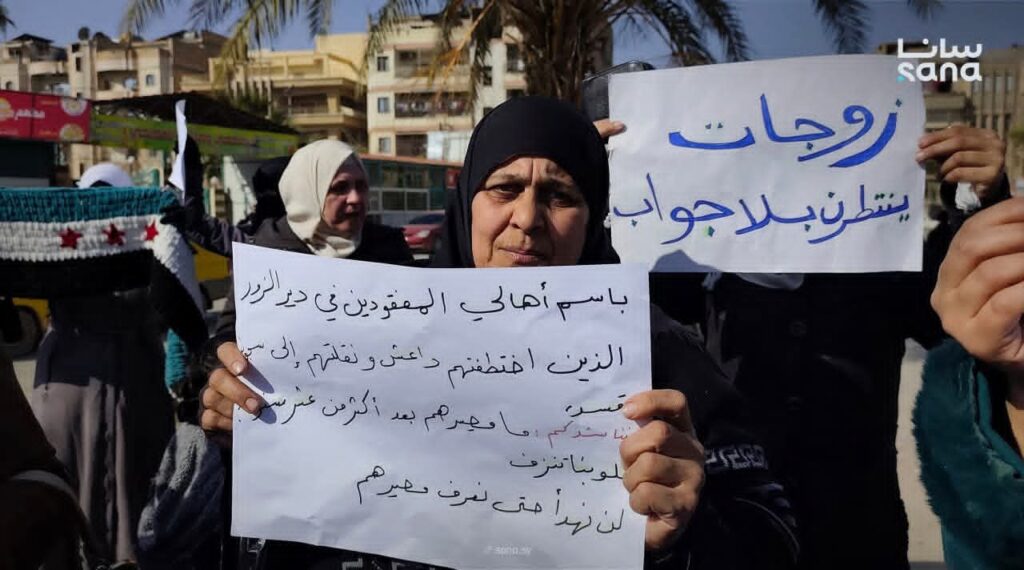 سانا
sana
زوجات
ينتظرن بلا جواب
باسم أهالي المفقودين في دير الزور
الذين اختطفتهم داعش و نقلتهم إلى
قسد
نناشدكم : ما مصيرهم بعد أكثر من عشر
قلوبنا تنزف
لن نهدأ حتى نعرف مصيرهم
sana.sy